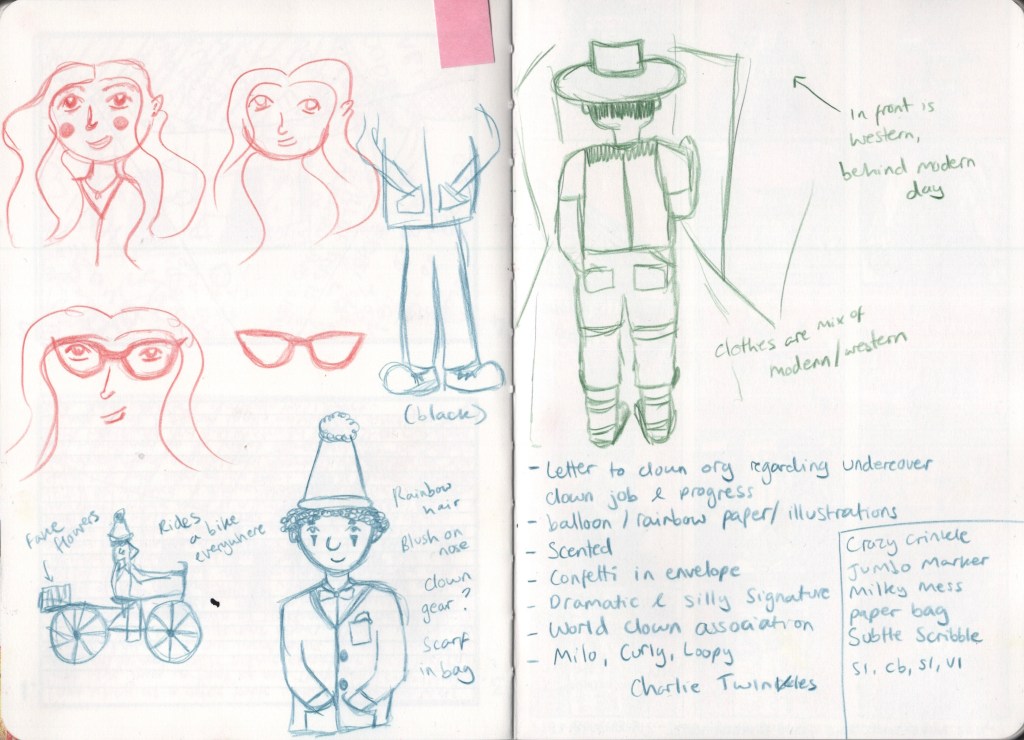 (black)
Rainbow
hair
Blush on
nose
clown
gear?
Scarf
in bag
Fake
flowers
Rides
a bike
everywhere
In front is
western,
behind modern
day
clothes are mix of
modern/western
- Letter to clown org regarding undercover
clown job & progress
- balloon/rainbow paper/illustrations
- Scented
- Confetti in envelope
- Dramatic & silly signature
- World clown association
- Milo, Curly, Loopy
Charlie Twinkles
Crazy Crinkle
Jumbo Marker
Milky mess
paper bag
Subtle Scribble
S1, cb, S1, V1